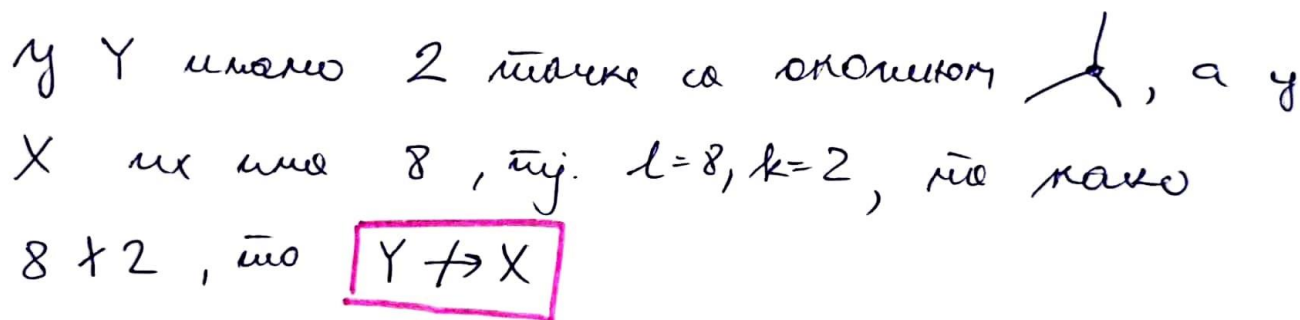 У Y имамо 2 тачке са околином , а у
X их има 8, тј. l=8, k=2, па како
8 ∤ 2, то Y ↛ X